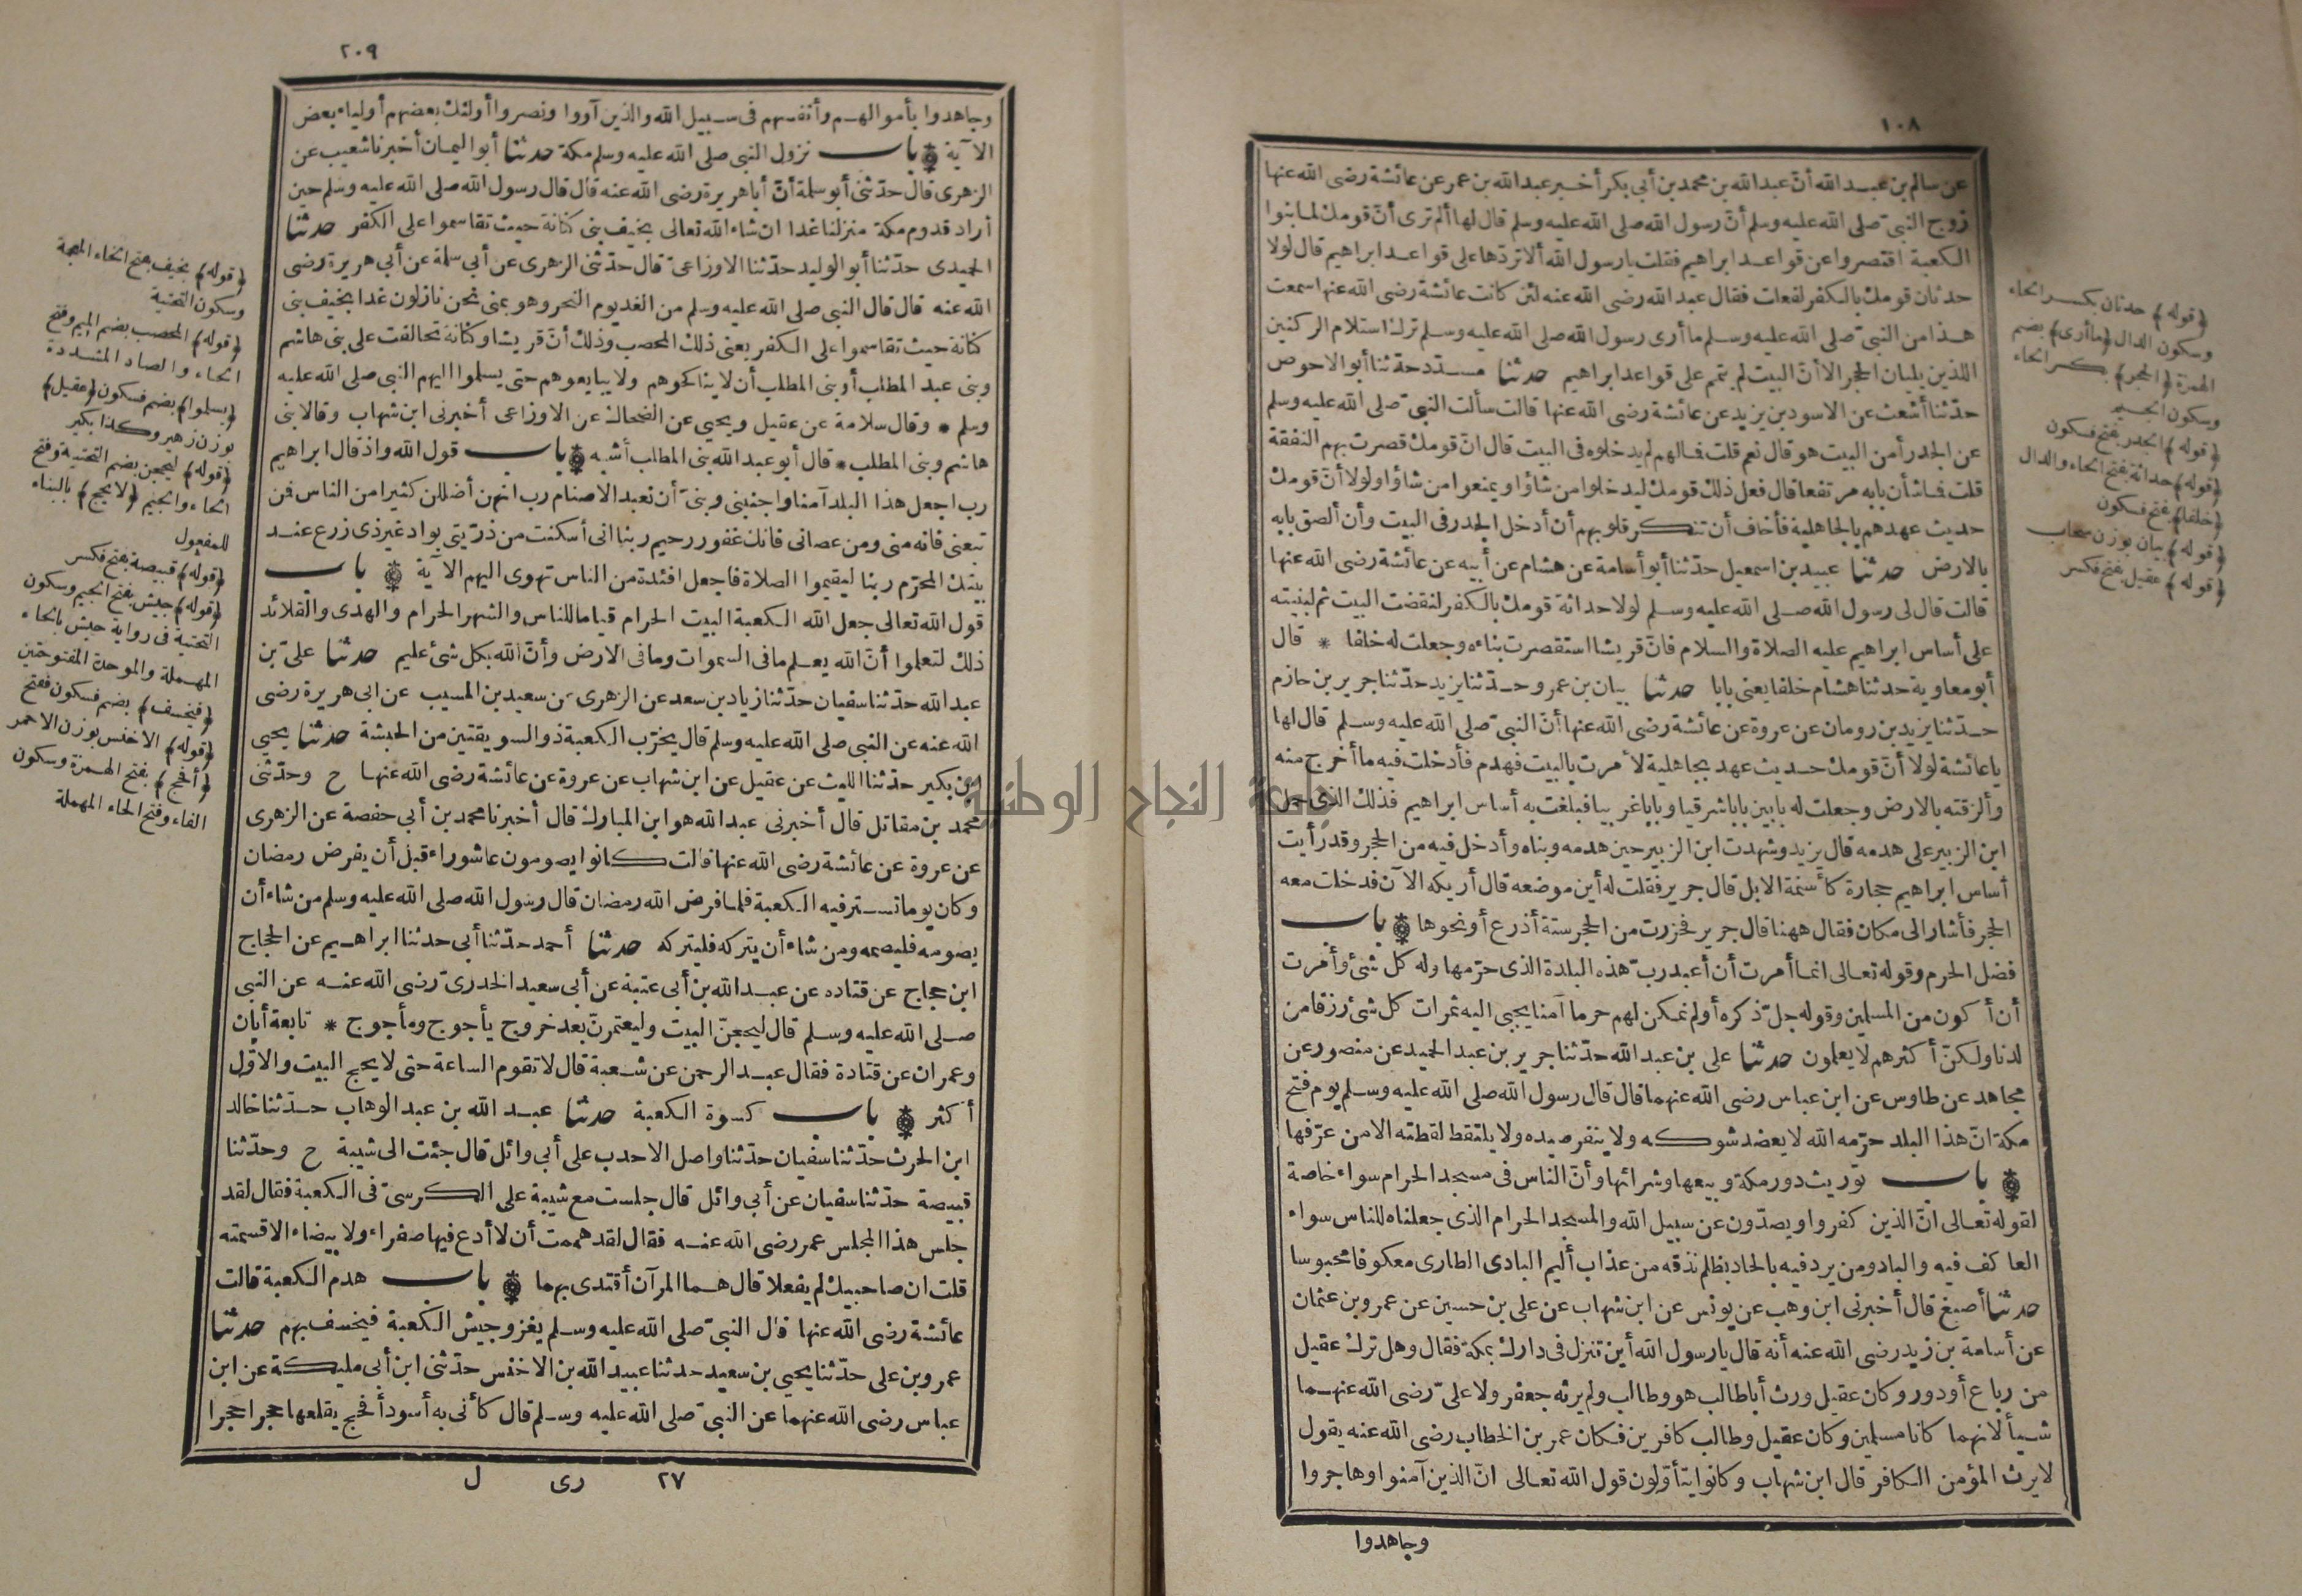 ١٠٨
عن سالم بن عبد الله أن عبد الله بن محمد بن أبي بكر أخبر عبد الله بن عمر عن عائشة رضى الله عنها
زوج النبي صلى الله عليه وسلم أن رسول الله صلى الله عليه وسلم قال لها ألم ترى أن قومك لما بنوا
الكعبة اقتصروا عن قواعد ابراهيم فقلت يارسول الله ألا تردها على قواعد ابراهيم قال لولا
حدثان قومك بالكفر لفعلت فقال عبد الله رضى الله عنه لئن كانت عائشة رضى الله عنها سمعت
هذا من النبي صلى الله عليه وسلم ما أرى رسول الله صلى الله عليه وسلم ترك استلام الركنين
اللذين يليان الحجر الا أن البيت لم يتمم على قواعد ابراهيم حدثنا مسدد حدثنا أبو الاحوص
حدثنا أشعث عن الاسود بن يزيد عن عائشة رضى الله عنها قالت سألت النبي صلى الله عليه وسلم
عن الجدر أمن البيت هو قال نعم قلت فمالهم لم يدخلوه فى البيت قال ان قومك قصرت بهم النفقة
قلت فما شأن بابه مرتفعا قال فعل ذلك قومك ليدخلوا من شاؤا ويمنعوا من شاؤا ولولا أن قومك
حديث عهدهم بالجاهلية فأخاف أن تنكر قلوبهم أن أدخل الجدر فى البيت وأن ألصق بابه
بالارض حدثنا عبيد بن اسمعيل حدثنا أبو أسامة عن هشام عن أبيه عن عائشة رضى الله عنها
قالت قال لى رسول الله صلى الله عليه وسلم لولا حداثة قومك بالكفر لنقضت البيت ثم لبنيته
على أساس ابراهيم عليه الصلاة والسلام فان قريشا استقصرت بناءه وجعلت له خلفا * قال
أبو معاوية حدثنا هشام خلفا يعنى بابا حدثنا بيان بن عمرو حدثنا يزيد حدثنا جرير بن حازم
حدثنا يزيد بن رومان عن عروة عن عائشة رضى الله عنها أن النبي صلى الله عليه وسلم قال لها
ياعائشة لولا أن قومك حديث عهد بجاهلية لأمرت بالبيت فهدم فأدخلت فيه ما أخرج منه
وألزقته بالارض وجعلت له بابين بابا شرقيا وبابا غربيا فبلغت به أساس ابراهيم فذلك الذى حمل
ابن الزبير على هدمه قال يزيد وشهدت ابن الزبير حين هدمه وبناه وأدخل فيه من الحجر وقد رأيت
أساس ابراهيم حجارة كأسنمة الابل قال جرير فقلت له أين موضعه قال أريكه الآن فدخلت معه
الحجر فأشار الى مكان فقال ههنا قال جرير فحزرت من الحجر ستة أذرع أو نحوها باب
فضل الحرم وقوله تعالى انما أمرت أن أعبد رب هذه البلدة الذى حرمها وله كل شئ وأمرت
أن أكون من المسلمين وقوله جل ذكره أولم نمكن لهم حرما آمنا يجبى اليه ثمرات كل شئ رزقا من
لدنا ولكن أكثرهم لا يعلمون حدثنا على بن عبد الله حدثنا جرير بن عبد الحميد عن منصور عن
مجاهد عن طاوس عن ابن عباس رضى الله عنهما قال قال رسول الله صلى الله عليه وسلم يوم فتح
مكة ان هذا البلد حرمه الله لا يعضد شوكه ولا ينفر صيده ولا يلتقط لقطته الا من عرفها
باب توريث دور مكة وبيعها وشرائها وأن الناس فى مسجد الحرام سواء خاصة
لقوله تعالى ان الذين كفروا ويصدون عن سبيل الله والمسجد الحرام الذى جعلناه للناس سواء
العاكف فيه والباد ومن يرد فيه بالحاد بظلم نذقه من عذاب أليم البادى الطارى معكوفا محبوسا
حدثنا أصبغ قال أخبرنى ابن وهب عن يونس عن ابن شهاب عن على بن حسين عن عمرو بن عثمان
عن أسامة بن زيد رضى الله عنه أنه قال يا رسول الله أين تنزل فى دارك بمكة فقال وهل ترك عقيل
من رباع أو دور وكان عقيل ورث أبا طالب هو وطالب ولم يرثه جعفر ولا على رضى الله عنهما
شيأ لانهما كانا مسلمين وكان عقيل وطالب كافرين فكان عمر بن الخطاب رضى الله عنه يقول
لا يرث المؤمن الكافر قال ابن شهاب وكانوا يتأولون قول الله تعالى ان الذين آمنوا وهاجروا
وجاهدوا
(قوله) حدثان بكسر الحاء
وسكون الدال (ما أرى) بضم
الهمزة (الحجر) بكسر الحاء
وسكون الجيم
(قوله) الجدر بفتح فسكون
(قوله) حداثة بفتح الحاء والدال
(خلفا) بفتح فسكون
(قوله) بيان بوزن سحاب
(قوله) عقيل بفتح فكسر
٢٠٩
وجاهدوا بأموالهم وأنفسهم فى سبيل الله والذين آووا ونصروا أولئك بعضهم أولياء بعض
الآية باب نزول النبى صلى الله عليه وسلم مكة حدثنا أبو اليمان أخبرنا شعيب عن
الزهرى قال حدثنى أبو سلمة أن أبا هريرة رضى الله عنه قال قال رسول الله صلى الله عليه وسلم حين
أراد قدوم مكة منزلنا غدا ان شاء الله تعالى بخيف بنى كنانة حيث تقاسموا على الكفر حدثنا
الحميدى حدثنا أبو الوليد حدثنا الاوزاعى قال حدثنى الزهرى عن أبى سلمة عن أبى هريرة رضى
الله عنه قال قال النبى صلى الله عليه وسلم من الغد يوم النحر وهو بمنى نحن نازلون غدا بخيف بنى
كنانة حيث تقاسموا على الكفر يعنى ذلك المحصب وذلك أن قريشا وكنانة تحالفت على بنى هاشم
وبنى عبد المطلب أو بنى المطلب أن لا يناكحوهم ولا يبايعوهم حتى يسلموا اليهم النبى صلى الله عليه
وسلم * وقال سلامة عن عقيل ويحيى عن الضحاك عن الاوزاعى أخبرنى ابن شهاب وقالا بنى
هاشم وبنى المطلب * قال أبو عبد الله بنى المطلب أشبه باب قول الله واذ قال ابراهيم
رب اجعل هذا البلد آمنا واجنبنى وبنى أن نعبد الاصنام رب انهن أضللن كثيرا من الناس فمن
تبعنى فانه منى ومن عصانى فانك غفور رحيم ربنا انى أسكنت من ذريتى بواد غير ذى زرع عند
بيتك المحرم ربنا ليقيموا الصلاة فاجعل افئدة من الناس تهوى اليهم الآية باب
قول الله تعالى جعل الله الكعبة البيت الحرام قياما للناس والشهر الحرام والهدى والقلائد
ذلك لتعلموا أن الله يعلم ما فى السموات وما فى الارض وأن الله بكل شئ عليم حدثنا على بن
عبد الله حدثنا سفيان حدثنا زياد بن سعد عن الزهرى عن سعيد بن المسيب عن ابى هريرة رضى
الله عنه عن النبى صلى الله عليه وسلم قال يخرب الكعبة ذو السويقتين من الحبشة حدثنا يحيى
ابن بكير حدثنا الليث عن عقيل عن ابن شهاب عن عروة عن عائشة رضى الله عنها ح وحدثنى
محمد بن مقاتل قال أخبرنى عبد الله هو ابن المبارك قال أخبرنا محمد بن أبى حفصة عن الزهرى
عن عروة عن عائشة رضى الله عنها قالت كانوا يصومون عاشوراء قبل أن يفرض رمضان
وكان يوما تستر فيه الكعبة فلما فرض الله رمضان قال رسول الله صلى الله عليه وسلم من شاء أن
يصومه فليصمه ومن شاء أن يتركه فليتركه حدثنا أحمد حدثنا أبى حدثنا ابراهيم عن الحجاج
ابن حجاج عن قتاده عن عبد الله بن أبى عتبة عن أبى سعيد الخدرى رضى الله عنه عن النبى
صلى الله عليه وسلم قال ليحجن البيت وليعتمرن بعد خروج يأجوج ومأجوج * تابعه أبان
وعمران عن قتادة فقال عبد الرحمن عن شعبة قال لا تقوم الساعة حتى لا يحج البيت والاول
أكثر باب كسوة الكعبة حدثنا عبد الله بن عبد الوهاب حدثنا خالد
ابن الحرث حدثنا سفيان حدثنا واصل الاحدب على أبى وائل قال جئت الى شيبة ح وحدثنا
قبيصة حدثنا سفيان عن أبى وائل قال جلست مع شيبة على الكرسى فى الكعبة فقال لقد
جلس هذا المجلس عمر رضى الله عنه فقال لقد هممت أن لا أدع فيها صفراء ولا بيضاء الا قسمته
قلت ان صاحبيك لم يفعلا قال هما المرآن أقتدى بهما باب هدم الكعبة قالت
عائشة رضى الله عنها قال النبى صلى الله عليه وسلم يغزو جيش الكعبة فيخسف بهم حدثنا
عمرو بن على حدثنا يحيى بن سعيد حدثنا عبيد الله بن الاخنس حدثنى ابن أبى مليكة عن ابن
عباس رضى الله عنهما عن النبى صلى الله عليه وسلم قال كأنى به أسود أفحج يقلعها حجرا حجرا
٢٧ رى ل
(قوله) بخيف بفتح الخاء المعجمة
وسكون التحتية
(قوله) المحصب بضم الميم وفتح
الحاء والصاد المشددة
(يسلموا) بضم فسكون (عقيل)
بوزن زهير وكذا بكير
(قوله) ليحجن بضم التحتية وفتح
الحاء والجيم (لا يحج) بالبناء
للمفعول
(قوله) قبيصة بفتح فكسر
(قوله) جيش بفتح الجيم وسكون
التحتية فى رواية حبش بالحاء
المهملة والموحدة المفتوحتين
(فيخسف) بضم فسكون ففتح
(قوله) الاخنس بوزن الاحمر
(أفحج) بفتح الهمزة وسكون
الفاء وفتح الحاء المهملة
جامعة النجاح الوطنية